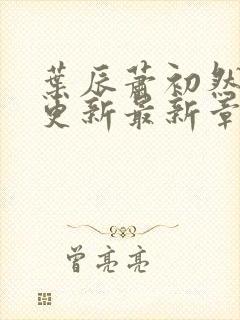 葉辰蕭初然
更新最新章
曾亮亮